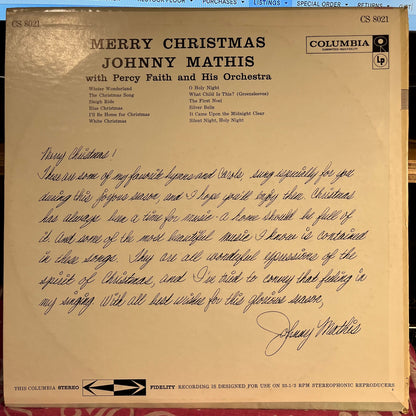 PURCHASES
LISTINGS
SPECIAL ORDERS
RETURNS
CS 8021
CS 8021
MERRY CHRISTMAS
JOHNNY MATHIS
with Percy Faith and His Orchestra
COLUMBIA
Lp
Winter Wonderland
The Christmas Song
Sleigh Ride
Blue Christmas
I'll Be Home for Christmas
White Christmas
O Holy Night
What Child Is This? (Greensleeves)
The First Noel
Silver Bells
It Came Upon the Midnight Clear
Silent Night, Holy Night
Merry Christmas!
These are some of my favorite hymns and carols, sung especially for you
during this joyous season, and I hope you'll enjoy them. Christmas
has always been a time for music - a home should be full of
it. And some of the most beautiful music I know is contained
in these songs. They are all wonderful expressions of the
spirit of Christmas, and I've tried to convey that feeling in
my singing. With all best wishes for this glorious season,
Johnny Mathis
THIS COLUMBIA STEREO FIDELITY RECORDING IS DESIGNED FOR USE ON 33-1/3 RPM STEREOPHONIC REPRODUCERS